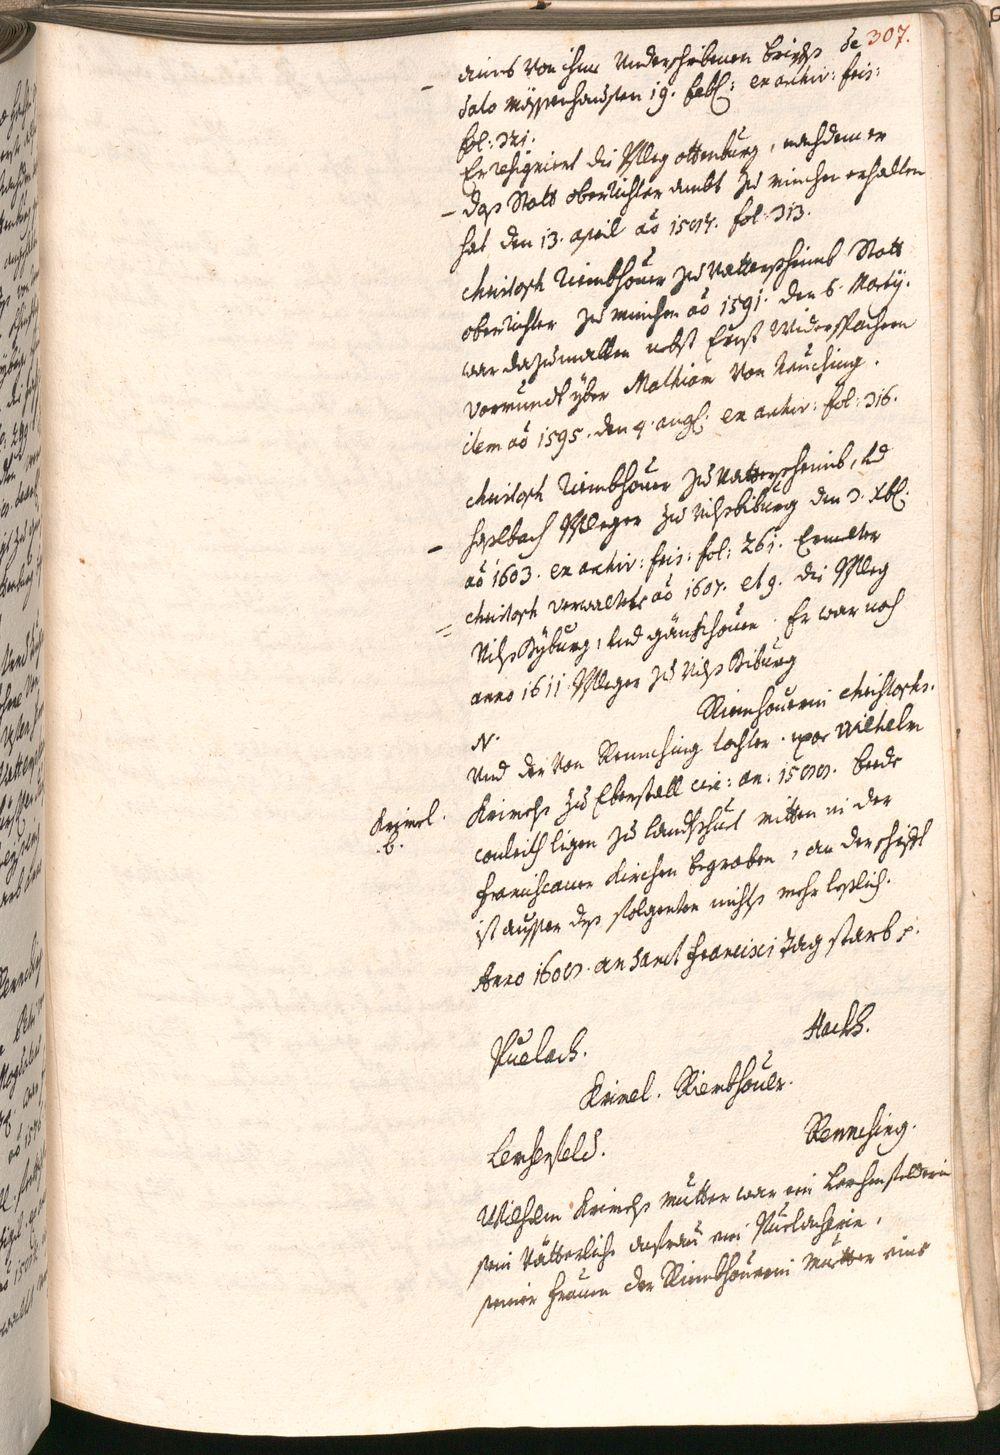 307.
aines von ihme underschribenen briefs de
dato Mössenhausen 19. febr: ex archiv: fris:
fol: 321.
Er resigniert die Pfleg ottenburg, nachdem er
- das Statt oberrichter ambt zu minchen erhalten
hat den 13. april aō 1594. fol: 313.
Christoph Riembhouer zu Vatterschaimb Statt
oberrichter zu münchen aō 1591. den 6. Martij.
war dazumallen nebst Ernst Widerspachern
vormundt yber Mathiam von Neuching.
item aō 1595. den 4. aug: ex archiv: fol: 316.
Christoph Riembhouer zu Vatterschaimb, und
- haslbach Pfleger zu Vilsbiburg den 3. Xbr:
aō 1603. ex archiv: fris: fol: 261. Ermelter
= Christoph verwaltet aō 1607. et 9. die Pfleg
Vils Byburg, und gänkhouen. Er war noch
anno 1611. Pfleger zu Vils Biburg
N. Riemhouerin Christophs.
und der von Rennching tochter. uxor Wilhelm
Krimel. b. Krimels zu Eberstall circ: an: 1599. beede
conleith ligen zu landtshuet mitten in der
franciscaner Kirchen begraben, an der schrifft
ist ausser des folgenten nichts mehr leslich.
Anno 1609. an Sanct francisci tag starb p.
Puelach. Hackh.
Krimel. Riembhouer.
Lerchenfeld. Rennching.
Wilhelm Krimels mutter war ein Lerchenfelderin
sein vätterliche anfrau ein Puelacherin,
seiner frauen der Riembhouerin mutter eine